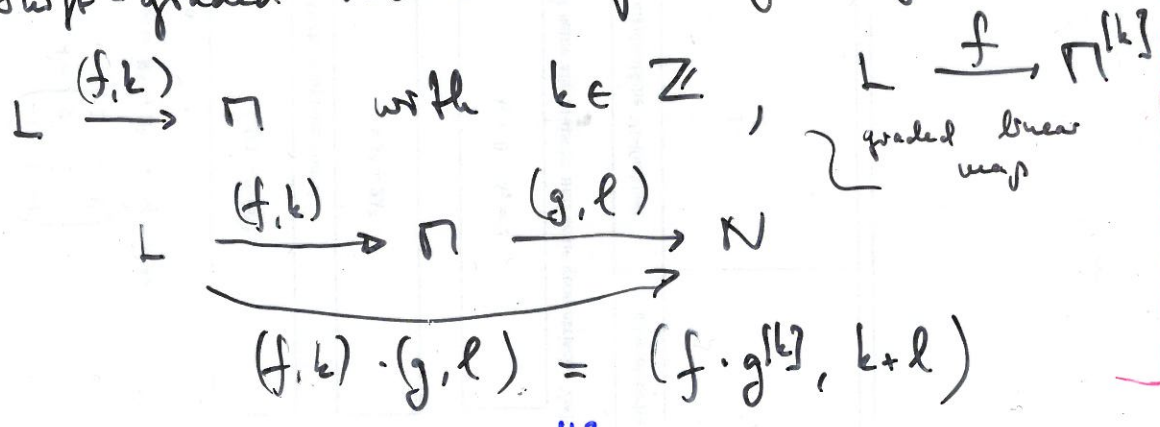 shift-graded
L \xrightarrow{(f,k)} M with k ∈ ℤ , L \xrightarrow{f} M^{[k]}
graded linear
map
L \xrightarrow{(f,k)} M \xrightarrow{(g,l)} N
(f,k)·(g,l) = (f·g^{[k]}, k+l)